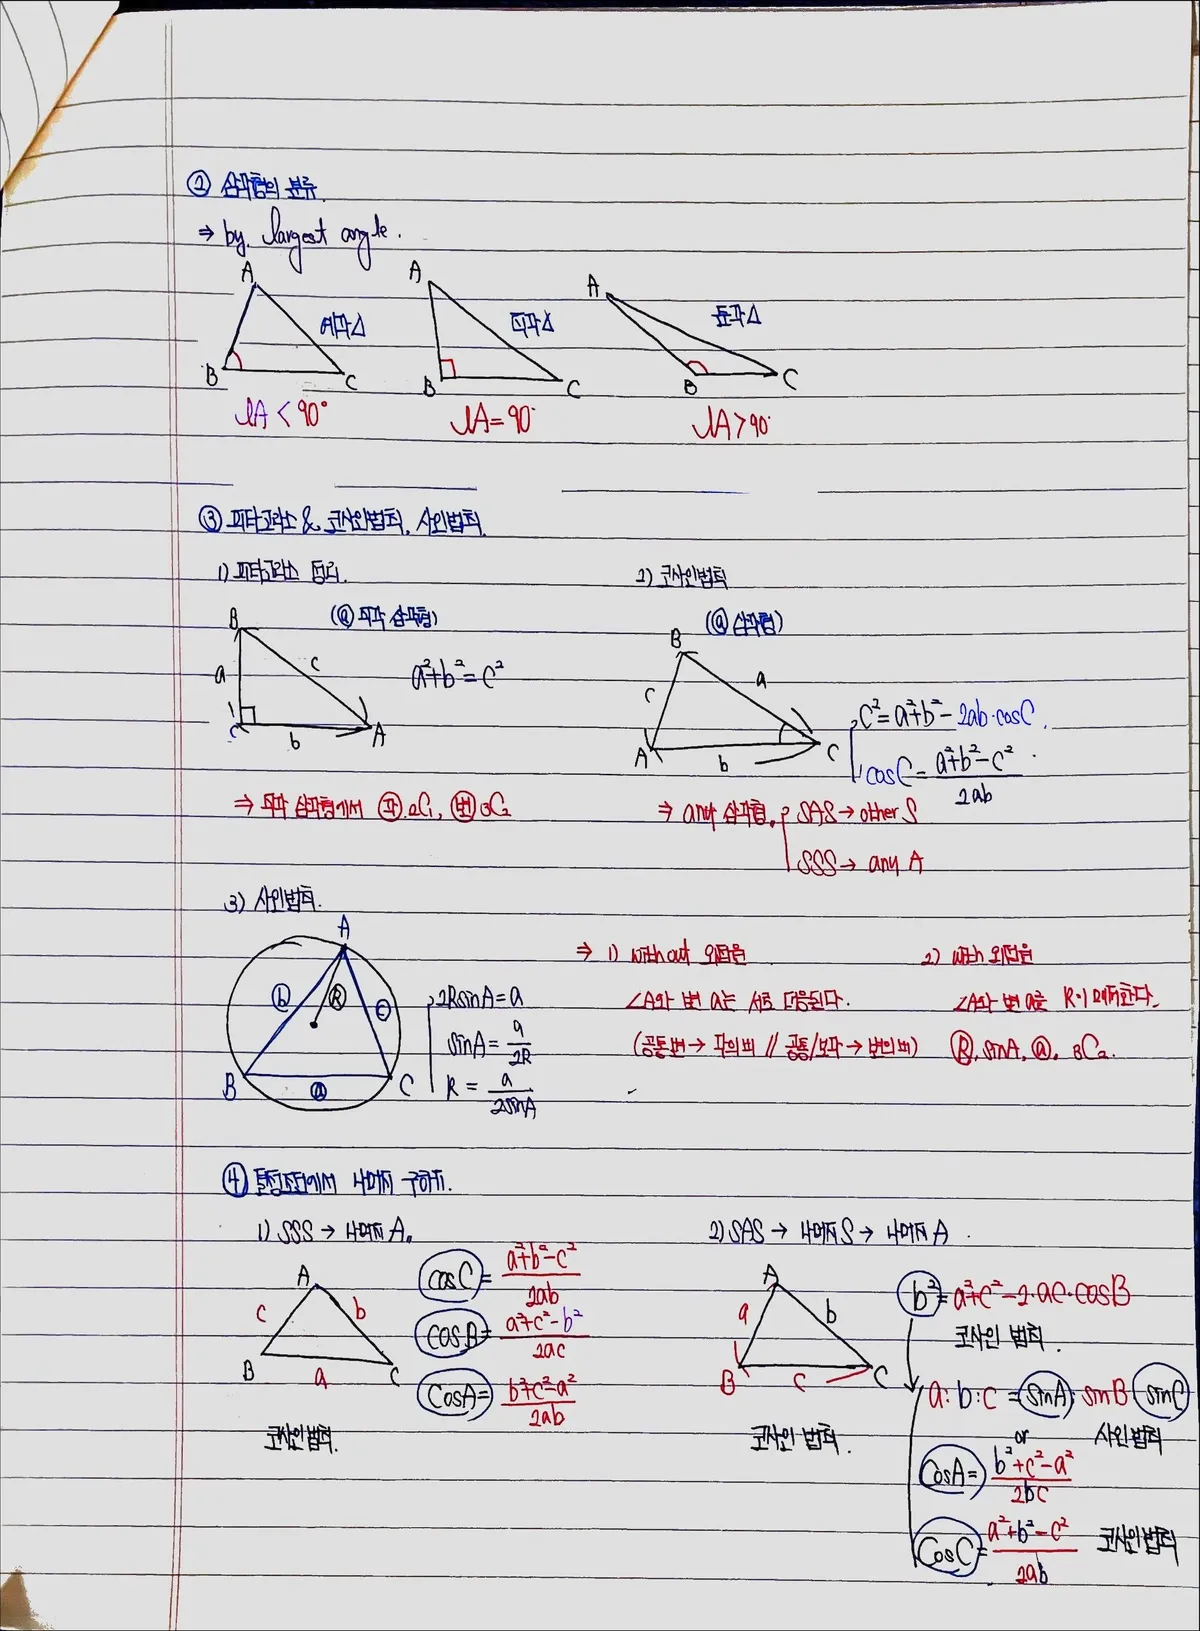 ② 삼각형의 분류.
⇒ by. largest angle.
A A A
예각△ 직각△ 둔각△
B C B C B C
∠A < 90° ∠A = 90° ∠A > 90°
③ 피타고라스 & 코사인법칙, 사인법칙.
1) 피타고라스 정리. 2) 코사인법칙
(@ 직각 삼각형) (@ 삼각형)
B a c C b A
a²+b²=c²
B c a A b C
c²=a²+b²-2ab·cosC.
cosC=\frac{a²+b²-c²}{2ab}
⇒ 직각 삼각형에서 각 2C1, 변 3C2
⇒ any 삼각형, SAS → other S
SSS → any A
3) 사인법칙.
A b R c B a C
2RsinA=a
sinA=\frac{a}{2R}
R=\frac{a}{2sinA}
⇒ 1) without 외접원
∠A와 변 a는 서로 대응된다.
(공통변 → 각의 비 // 공통/보각 → 변의 비)
2) with 외접원
∠A와 변 a로 R이 매개한다.
R, sinA, a, 3C2.
④ 결정조건에서 나머지 구하기.
1) SSS → 나머지 A.
A c b B a C
cosC=\frac{a²+b²-c²}{2ab}
cosB=\frac{a²+c²-b²}{2ac}
cosA=\frac{b²+c²-a²}{2ab}
코사인법칙.
2) SAS → 나머지 S → 나머지 A
A a b B c C
코사인 법칙.
b²=a²+c²-2·ac·cosB
코사인 법칙.
a:b:c = sinA:sinB:sinC
or 사인법칙
cosA=\frac{b²+c²-a²}{2bc}
cosC=\frac{a²+b²-c²}{2ab} 코사인법칙